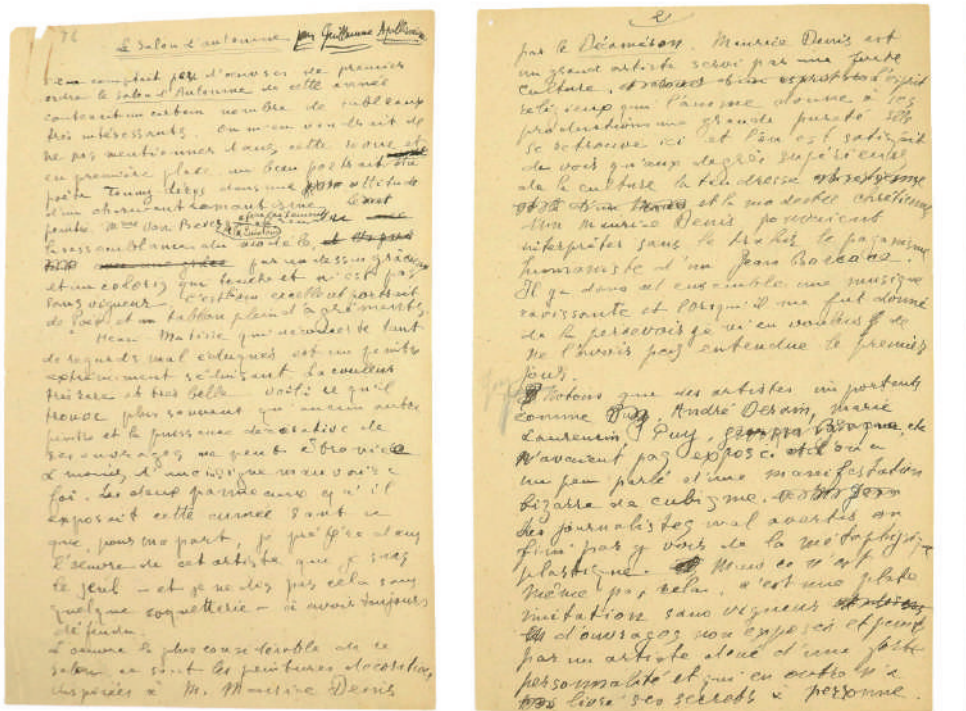 Le Salon d'automne par Guillaume Apollinaire
d'œuvres de premier
ordre le Salon d'Automne de cette année
contenait un certain nombre de tableaux
très intéressants. On m'en voudrait de
ne pas mentionner dans cette revue et
en première place un beau portrait du
poète dans une attitude
d'un charmant
peintre Mme Van Bever
la ressemblance du modèle,
par un dessin gracieux
et un coloris qui touche et n'est pas
sans vigueur. C'est un excellent portrait
de poète et un tableau plein d'agréments.
Henri Matisse qui déconcerte tant
de regards mal éduqués est un peintre
extrêmement séduisant. La couleur
très belle. Voilà ce qu'il
trouve plus souvent qu'aucun autre
peintre et la puissance décorative de
ses ouvrages ne peut être niée
à moins d'une insigne mauvaise
foi. Les deux panneaux qu'il
exposait cette année sont ce
que, pour ma part, je préfère dans
l'œuvre de cet artiste que je suis
le seul – et je ne dis pas cela sans
quelque coquetterie – à avoir toujours
défendu.
L'œuvre la plus considérable de ce
salon ce sont les peintures décoratives
inspirées à M. Maurice Denis
2
par le Décaméron. Maurice Denis est
un grand artiste servi par une forte
culture. L'esprit
religieux qui l'anime donne à ses
productions une grande pureté elle
se retrouve ici et l'on est satisfait
de voir qu'aux degrés supérieurs
de la culture la tendresse
et la modestie chrétienne
d'un Maurice Denis pouvaient
interpréter sans le trahir le paganisme
humaniste d'un Jean Boccace.
Il y a dans cet ensemble une musique
ravissante et lorsqu'il me fut donné
de la percevoir je m'en voulus de
ne l'avoir pas entendue le premier
jour.
Notons que des artistes importants
comme André Derain, Marie
Laurencin, Puy, etc
n'avaient pas exposé et l'on a
un peu parlé d'une manifestation
bizarre de cubisme.
Les journalistes mal avertis ont
fini par y voir de la métaphysique
plastique. Mais ce n'est
même pas cela. C'est une plate
imitation sans vigueur
d'ouvrages non exposés et peints
par un artiste doué d'une forte
personnalité et qui en outre n'a
livré ses secrets à personne.